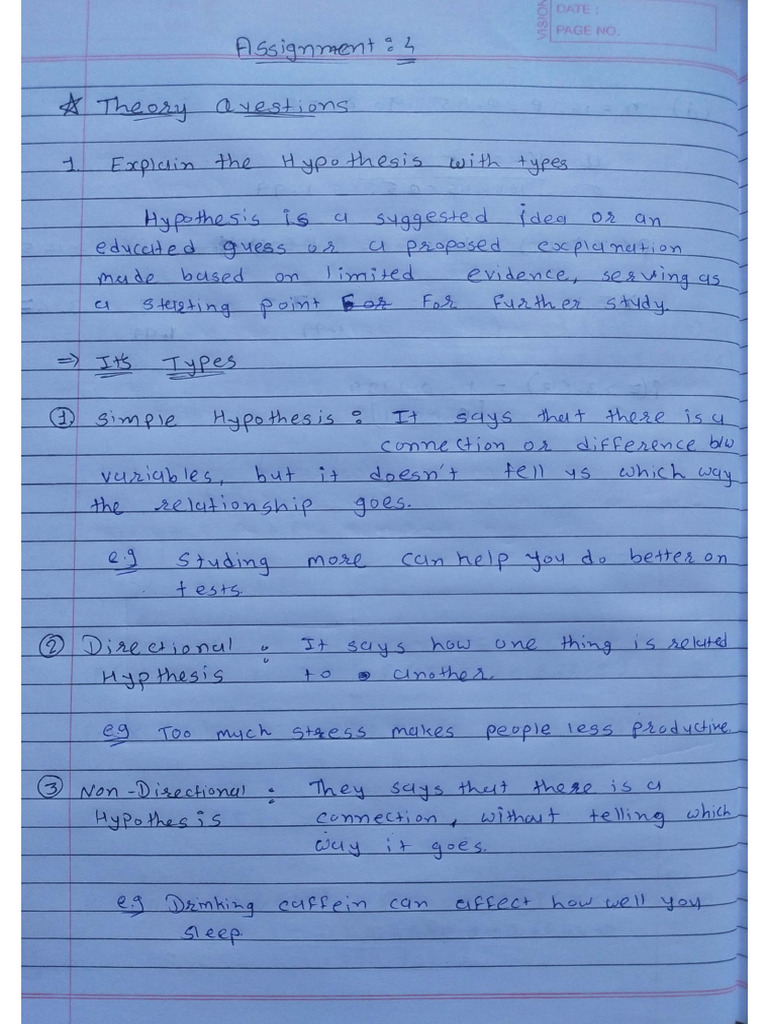 VISION
DATE :
PAGE NO.
Assignment : 4
☆ Theory Questions
1. Explain the Hypothesis with types
Hypothesis is a suggested idea or an
educated guess or a proposed explanation
made based on limited evidence, serving as
a starting point For for Further study.
⇒ It's Types
① Simple Hypothesis : It says that there is a
connection or difference b/w
variables, but it doesn't tell us which way
the relationship goes.
e.g Studing more can help you do better on
tests.
② Directional : It says how one thing is related
Hypthesis to another.
eg Too much stress makes people less productive.
③ Non-Directional : They says that there is a
Hypothesis connection, without telling which
way it goes.
e.g Drinking caffein can affect how well you
sleep